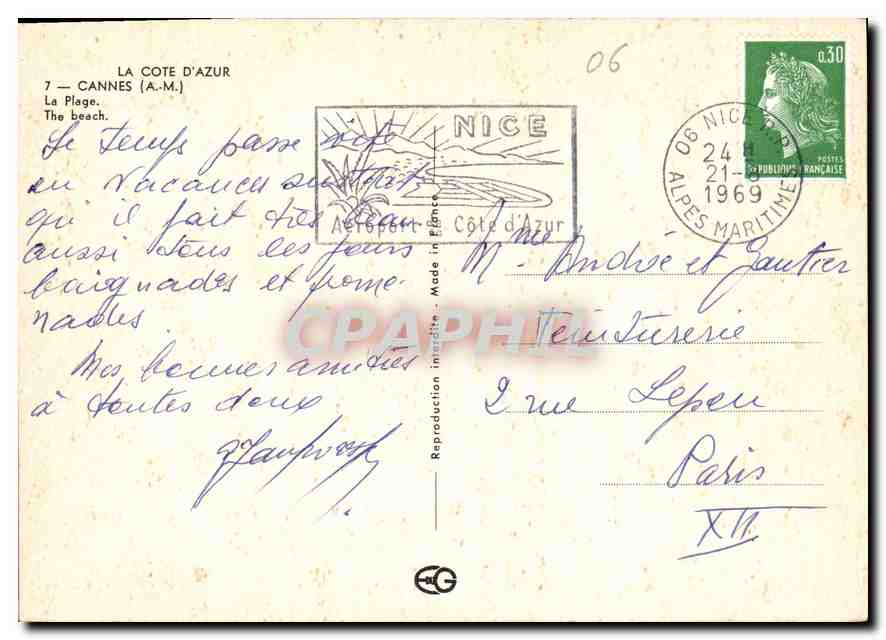 LA COTE D'AZUR
7 — CANNES (A.-M.)
La Plage.
The beach.
06
0,30
POSTES
REPUBLIQUE FRANÇAISE
06 NICE R.P.
24 H
21-
1969
ALPES MARITIMES
NICE
Aéroport Côte d'Azur
Le temps passe vite
en vacances surtout
qu'il fait très beau
aussi tous les jours
baignades et prome-
nades
Mes bonnes amitiés
à toutes deux
Reproduction interdite - Made in France
Mme Andrée et Gautier
Teinturerie
2 rue Lepeu
Paris
XII
EG
CPAPHIL